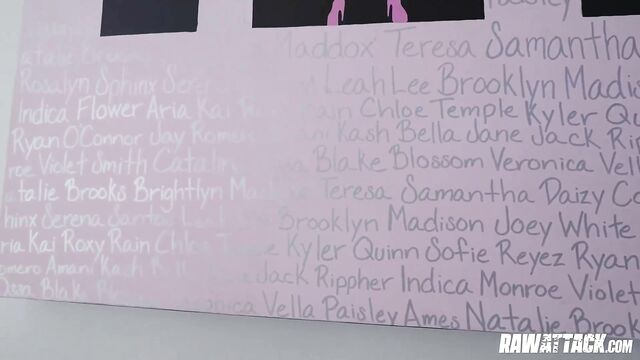 Maddox Teresa Samantha
Rosalyn Sphinx Leah Lee Brooklyn Madis
Indica Flower Aria Kai Rain Chloe Temple Kyler Qu
Ryan O'Connor Jay Rome Kash Bella Jane Jack Rip
roe Violet Smith Catali Blake Blossom Veronica Vell
talie Brooks Brightlyn Ma Teresa Samantha Daizy Co
hinx Serena Santos Brooklyn Madison Joey White
ria Kai Roxy Rain Chlo Kyler Quinn Sofie Reyez Ryan
omero Amani Kash Jack Rippher Indica Monroe Violet
Blake Vella Paisley Ames Natalie Brook
RAWATTACK.COM